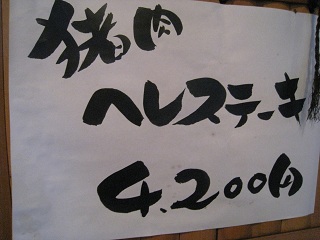 猪肉
ヘレステーキ
4.200円